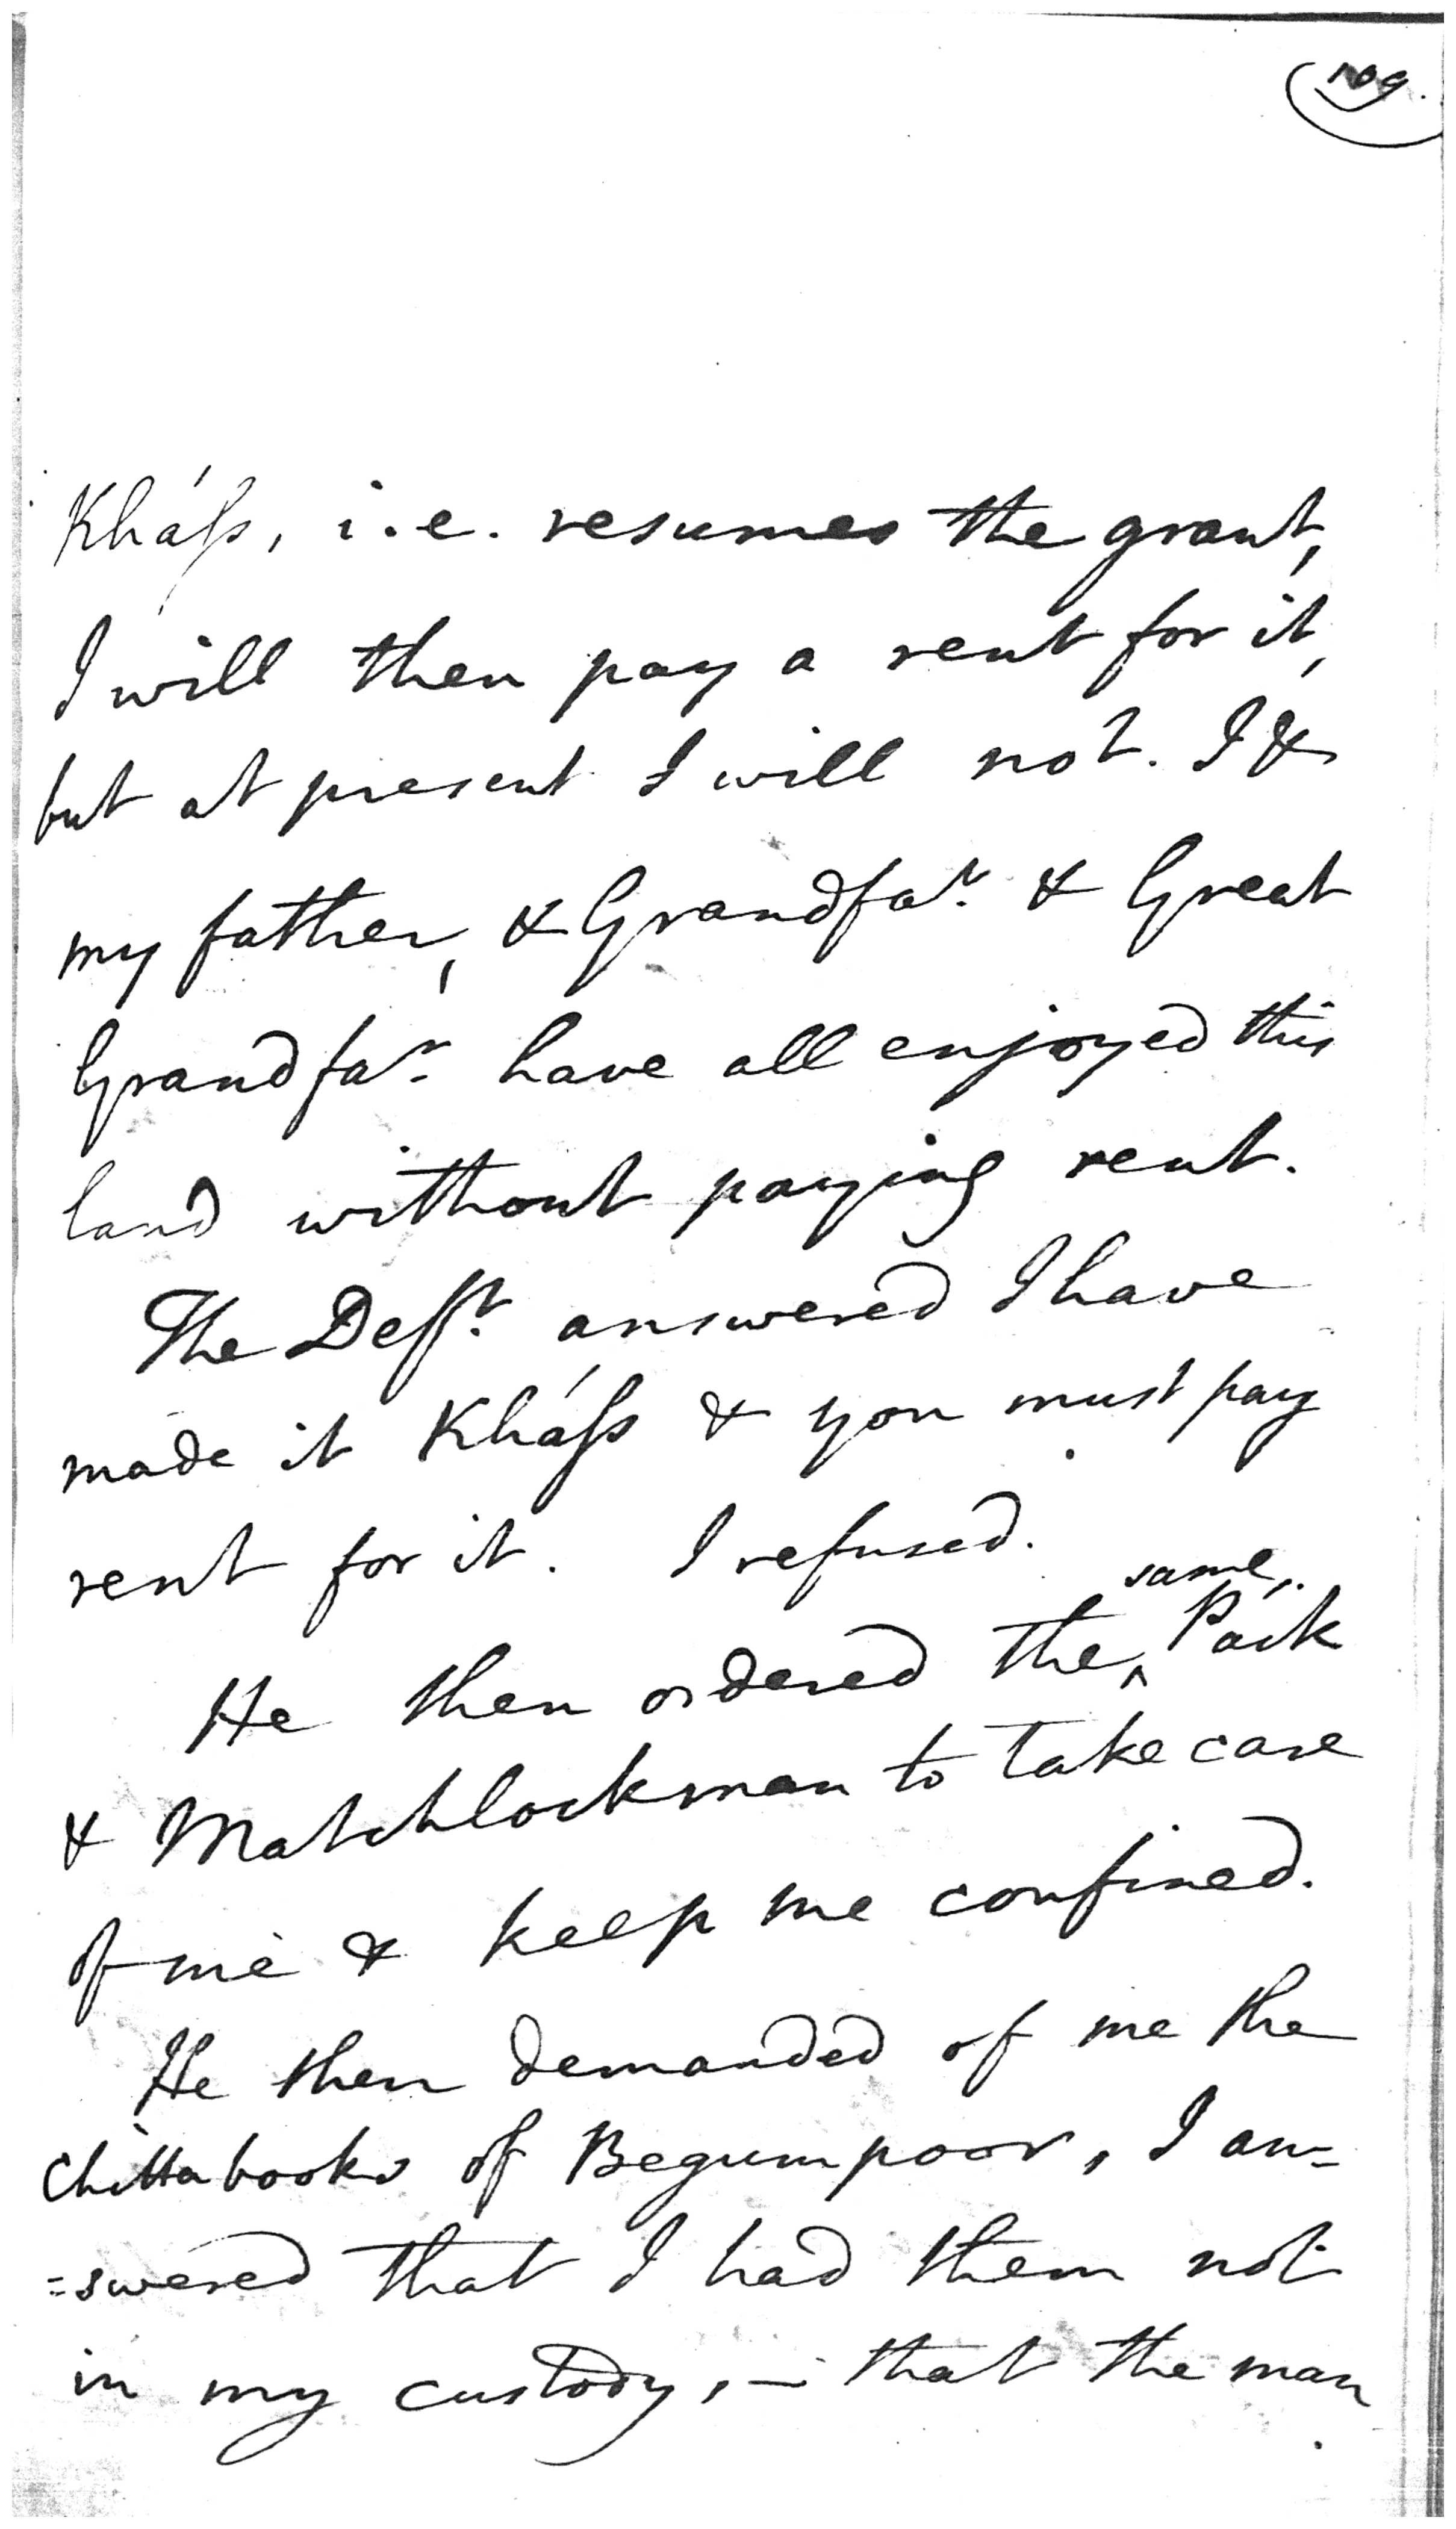 109.
Kháſs, i.e. resumes the grant,
I will then pay a rent for it,
but at present I will not. I &
my father, & Grandfar. & Great
Grandfar. have all enjoyed this
land without paying rent.
The Deft. answered I have
made it Kháſs & you must pay
rent for it. I refused.
He then ordered the same Paik
& Matchlockman to take care
of me & keep me confined.
He then demanded of me the
Chitta books of Begumpoor, I an=
=swered that I had them not
in my custody, – that the man